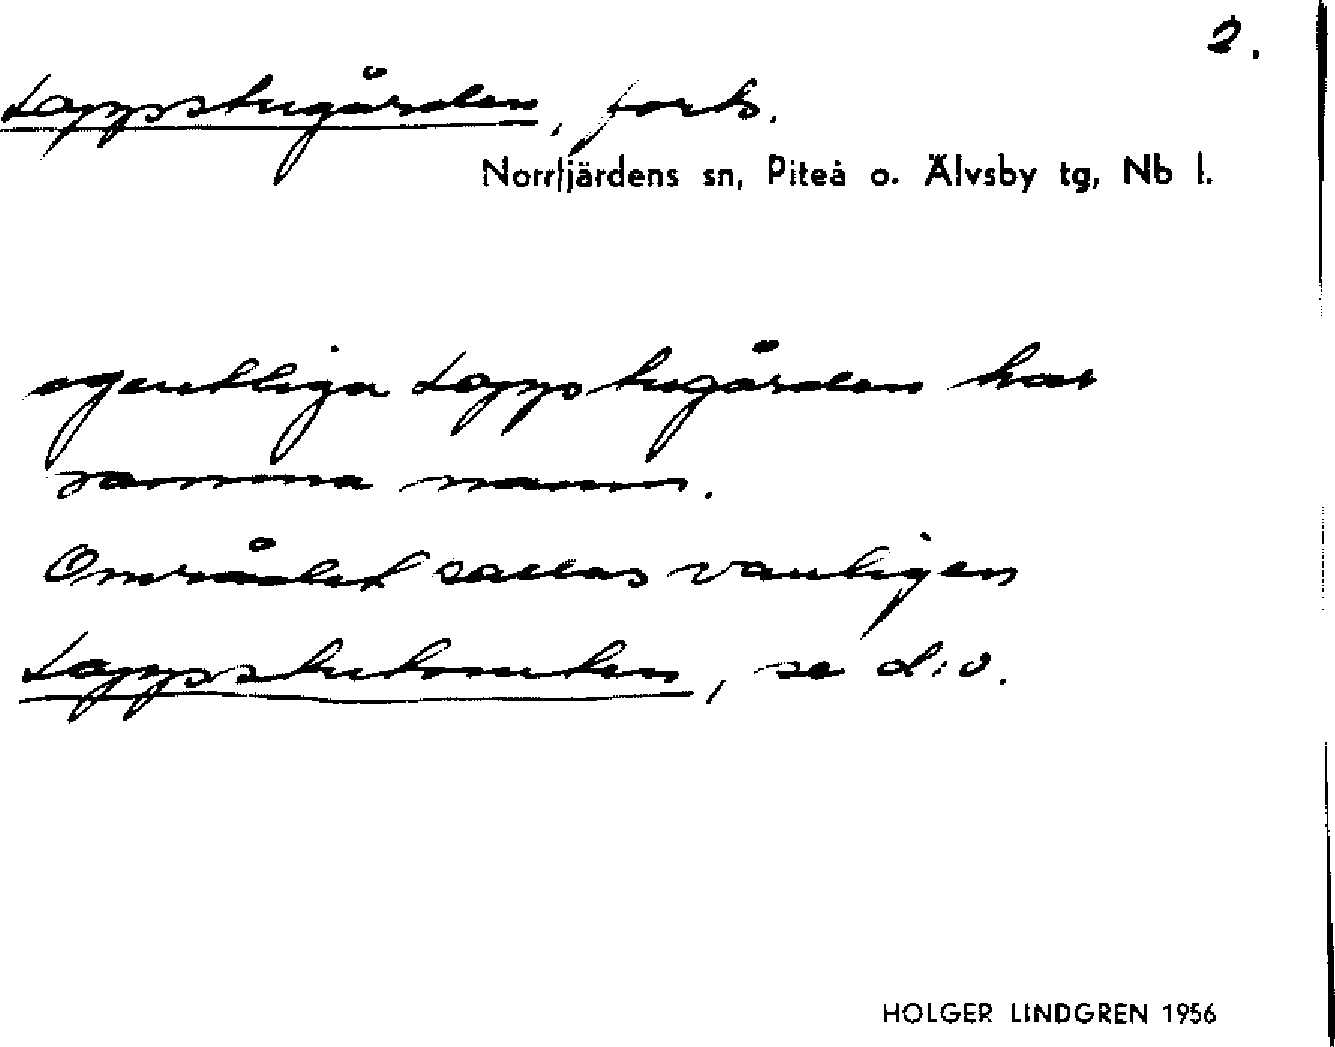 2.
Lappstugården, forts.
Norrfjärdens sn, Piteå o. Älvsby tg, Nb l.
egentliga Lappstugården har
samma namn.
Området kallas vanligen
Lappstutomten, se d:o.
HOLGER LINDGREN 1956